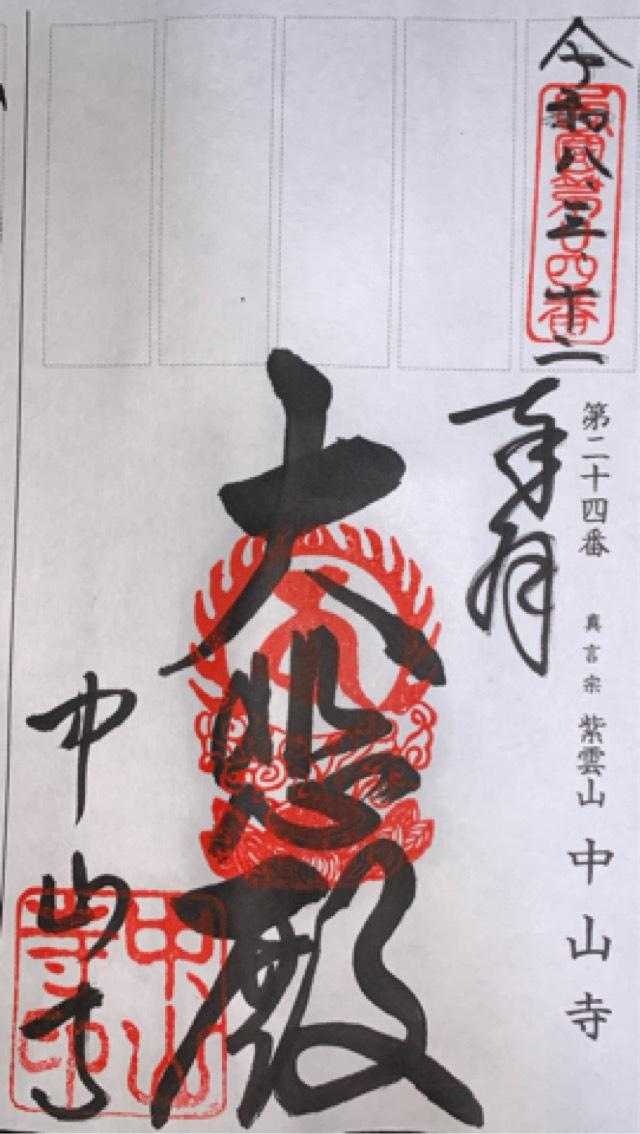 令和八、三、十二
西國第廿四番
第二十四番 真言宗 紫雲山 中山寺
奉拝
大悲殿
中山寺
中山寺印